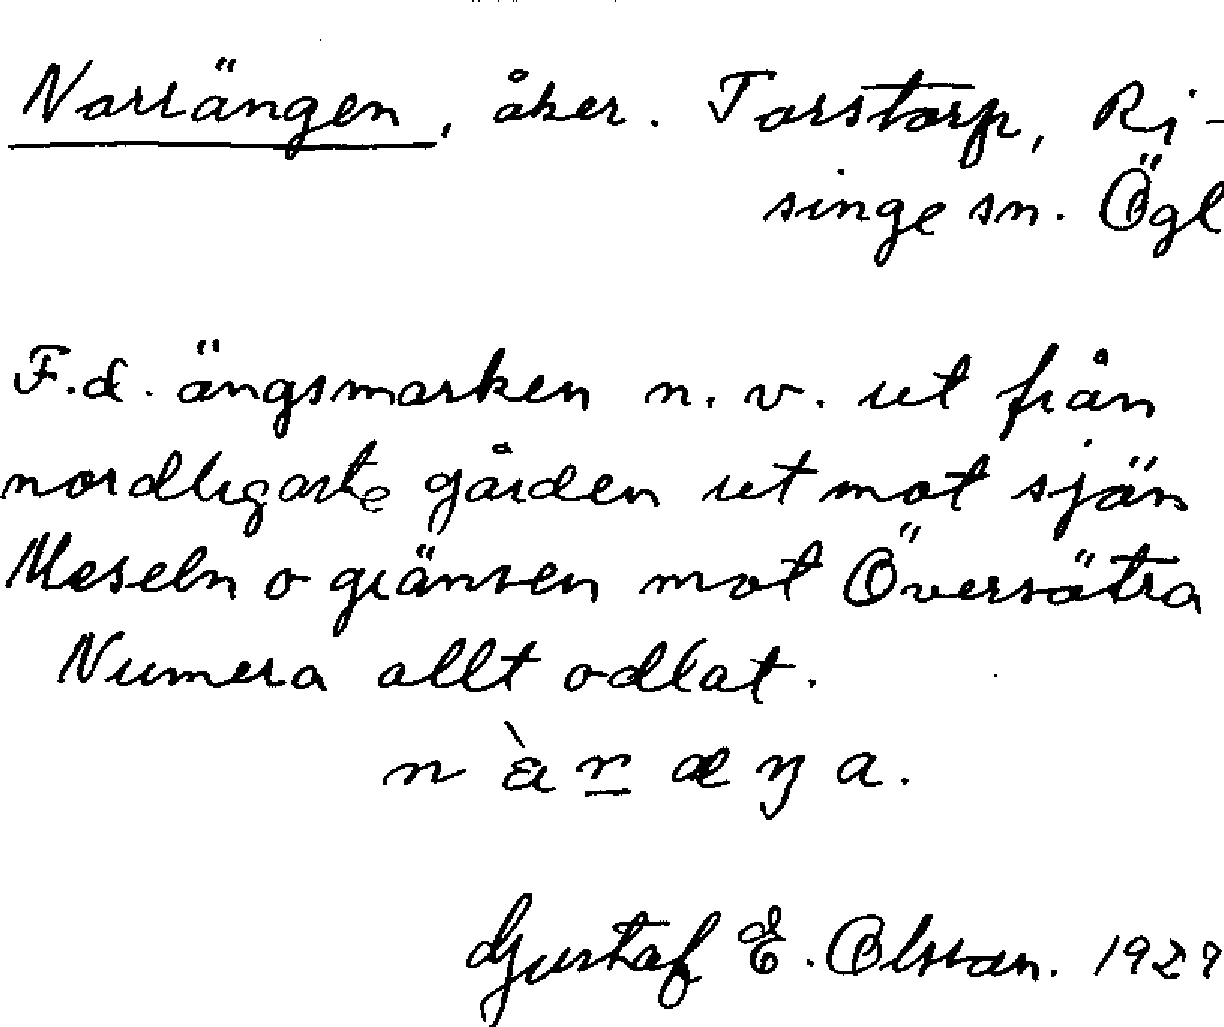 Norrängen, åker. Torstorp, Ri-
singe sn. Ögl
F.d. ängsmarken n.v. ut från
nordligaste gården ut mot sjön
Meseln o gränsen mot Översätra
Numera allt odlat.
Gustaf E. Olsson. 1927